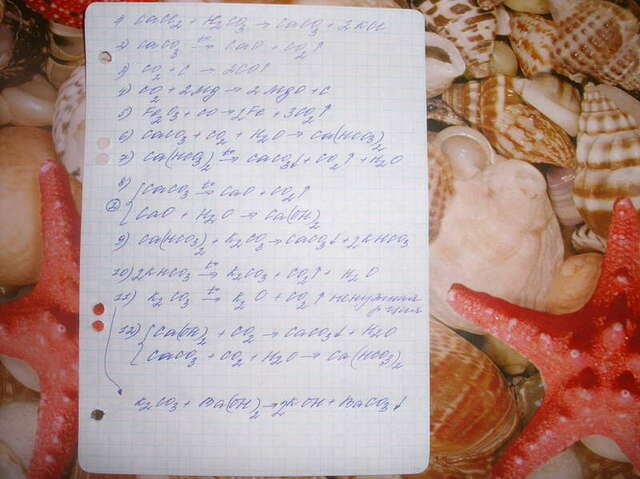 1) CaCl₂ + K₂CO₃ → CaCO₃ + 2KCl
2) CaCO₃ —t°→ CaO + CO₂↑
3) CO₂ + C → 2CO↑
4) CO₂ + 2Mg → 2MgO + C
5) Fe₂O₃ + CO → 2Fe + 3CO₂↑
6) CaCO₃ + CO₂ + H₂O → Ca(HCO₃)₂
7) Ca(HCO₃)₂ —t°→ CaCO₃↓ + CO₂↑ + H₂O
8)
{ CaCO₃ —t°→ CaO + CO₂↑
CaO + H₂O → Ca(OH)₂
9) Ca(HCO₃)₂ + K₂CO₃ → CaCO₃↓ + 2KHCO₃
10) 2KHCO₃ —t°→ K₂CO₃ + CO₂↑ + H₂O
11) K₂CO₃ —t°→ K₂O + CO₂↑ ненужная
12) { Ca(OH)₂ + CO₂ → CaCO₃↓ + H₂O
CaCO₃ + CO₂ + H₂O → Ca(HCO₃)₂
K₂CO₃ + Ba(OH)₂ → 2KOH + BaCO₃↓